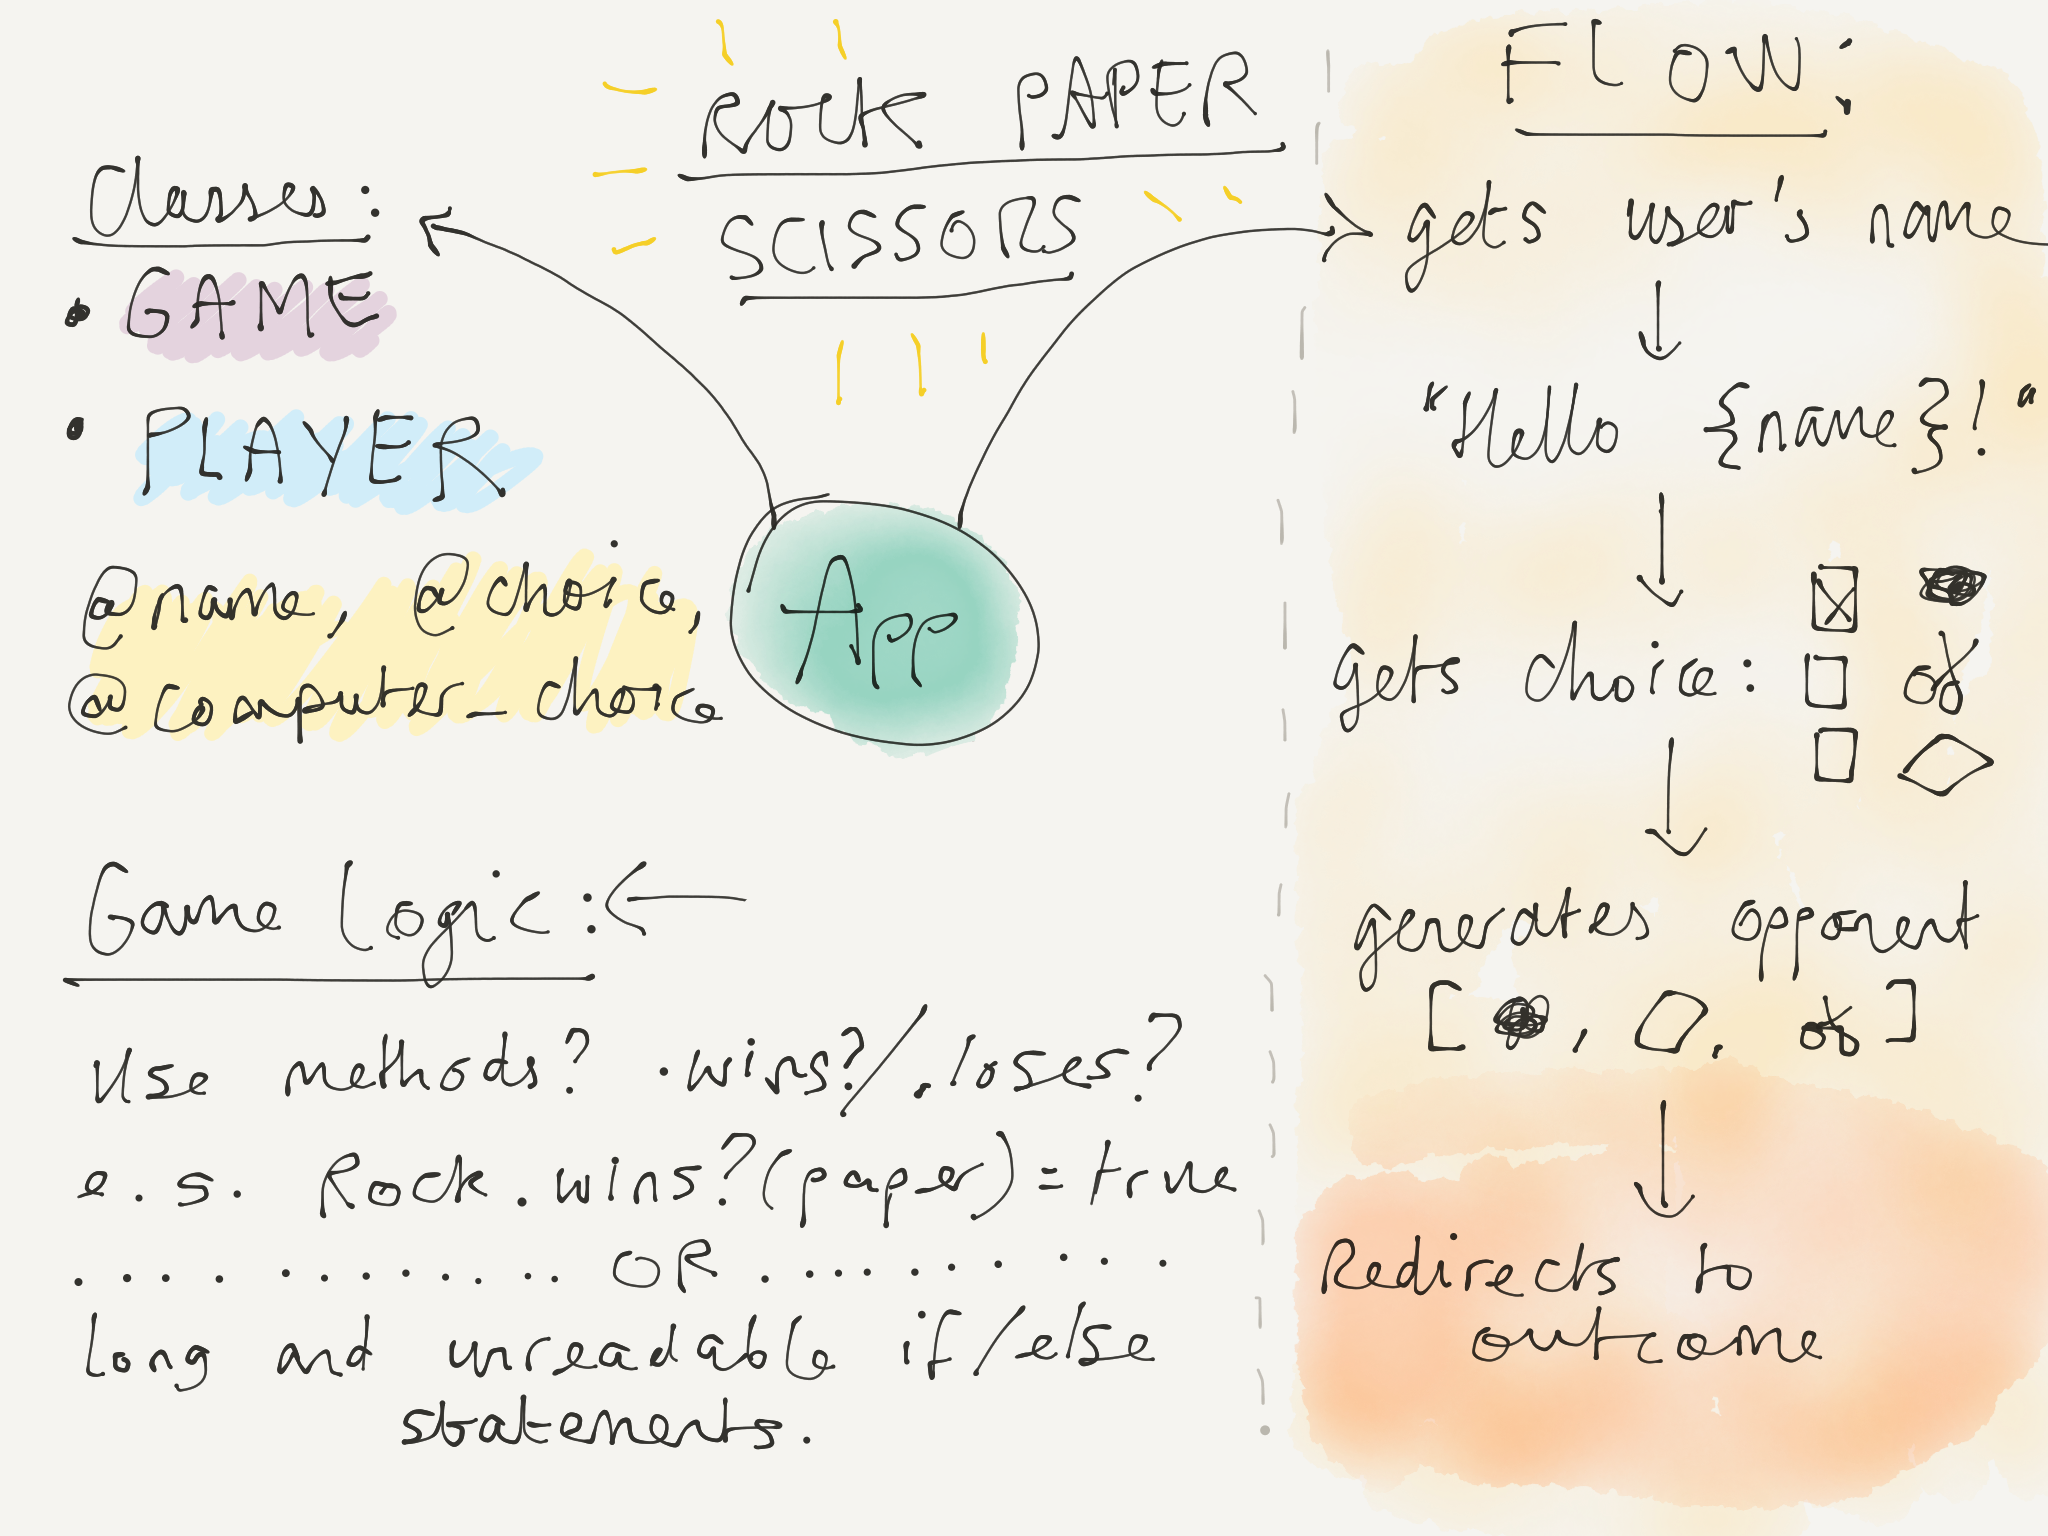 ROCK PAPER
SCISSORS
Classes:
• GAME
• PLAYER
@name, @choice,
@computer_choice
App
Game Logic:
Use methods? .wins?/.loses?
e.g. Rock.wins?(paper) = true
OR
long and unreadable if/else
statements.
FLOW:
gets user's name
"Hello {name}!"
gets choice:
generates opponent
[ , , ]
Redirects to
outcome